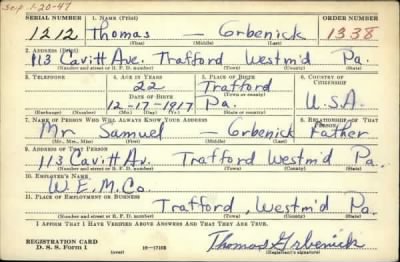 Sep. 1-20-47
SERIAL NUMBER 1. NAME (Print) ORDER NUMBER
1212 Thomas — Grbenick 1338
(First) (Middle) (Last)
2. ADDRESS (Print)
113 Cavitt Ave. Trafford Westm'd Pa.
(Number and street or R. F. D. number) (Town) (County) (State)
3. TELEPHONE 4. AGE IN YEARS 5. PLACE OF BIRTH 6. COUNTRY OF CITIZENSHIP
22 Trafford
DATE OF BIRTH (Town or county)
12-17-1917 Pa. U.S.A.
(Exchange) (Number) (Mo.) (Day) (Yr.) (State or country)
7. NAME OF PERSON WHO WILL ALWAYS KNOW YOUR ADDRESS 8. RELATIONSHIP OF THAT PERSON
Mr Samuel — Grbenick Father
(Mr., Mrs., Miss) (First) (Middle) (Last)
9. ADDRESS OF THAT PERSON
113 Cavitt Av. Trafford Westm'd Pa.
(Number and street or R. F. D. number) (Town) (County) (State)
10. EMPLOYER'S NAME
W.E.M.Co.
11. PLACE OF EMPLOYMENT OR BUSINESS
Trafford, Westm'd Pa.
(Number and street or R. F. D. number) (Town) (County) (State)
I AFFIRM THAT I HAVE VERIFIED ABOVE ANSWERS AND THAT THEY ARE TRUE.
REGISTRATION CARD
D. S. S. Form 1 (over) 16—17105 Thomas Grbenick
(Registrant's signature)